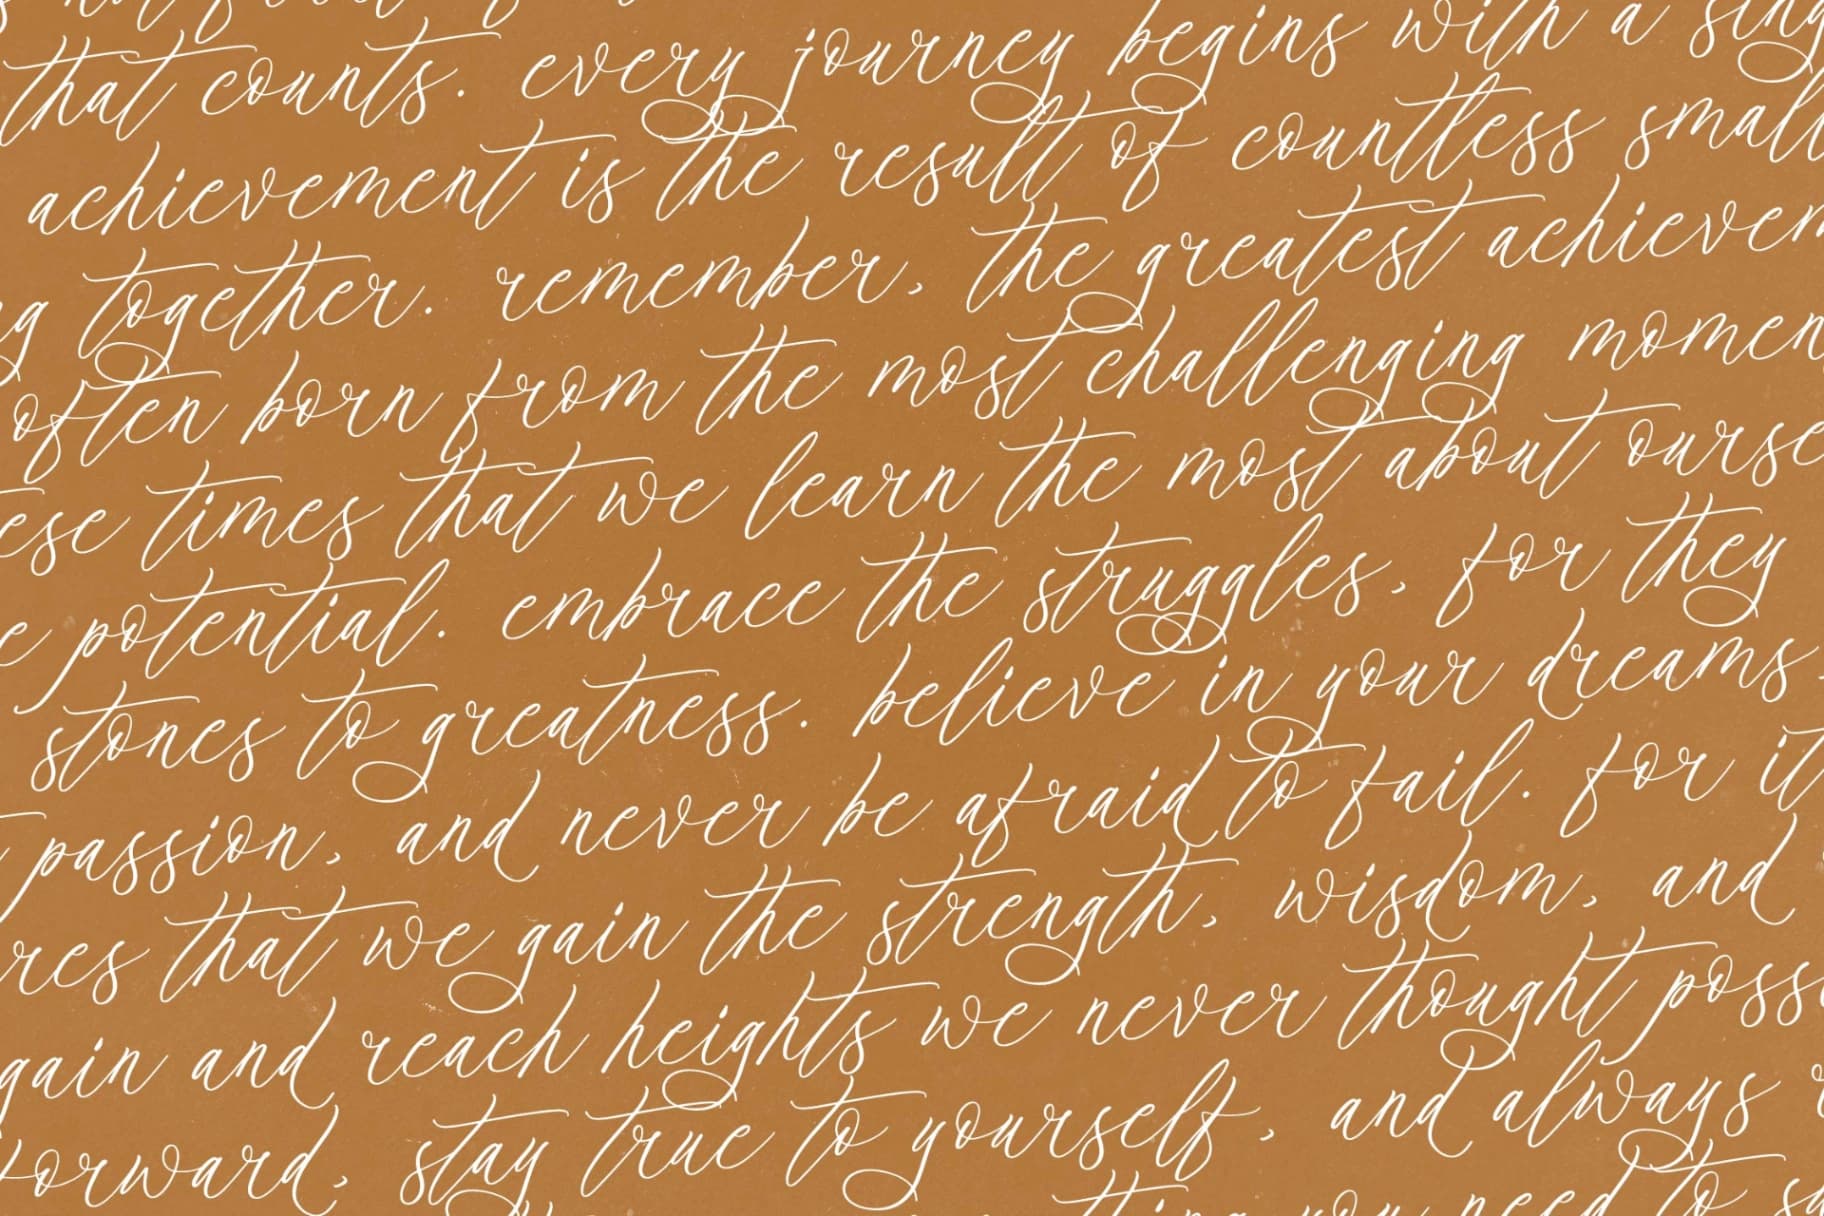 that counts. every journey begins with a
achievement is the result of countless small
together. remember, the greatest
often born from the most challenging
times that we learn the most about
potential. embrace the struggles, for they
stones to greatness. believe in your dreams.
passion, and never be afraid to fail. for it
that we gain the strength, wisdom, and
gain and reach heights we never thought
forward, stay true to yourself, and always
you need to